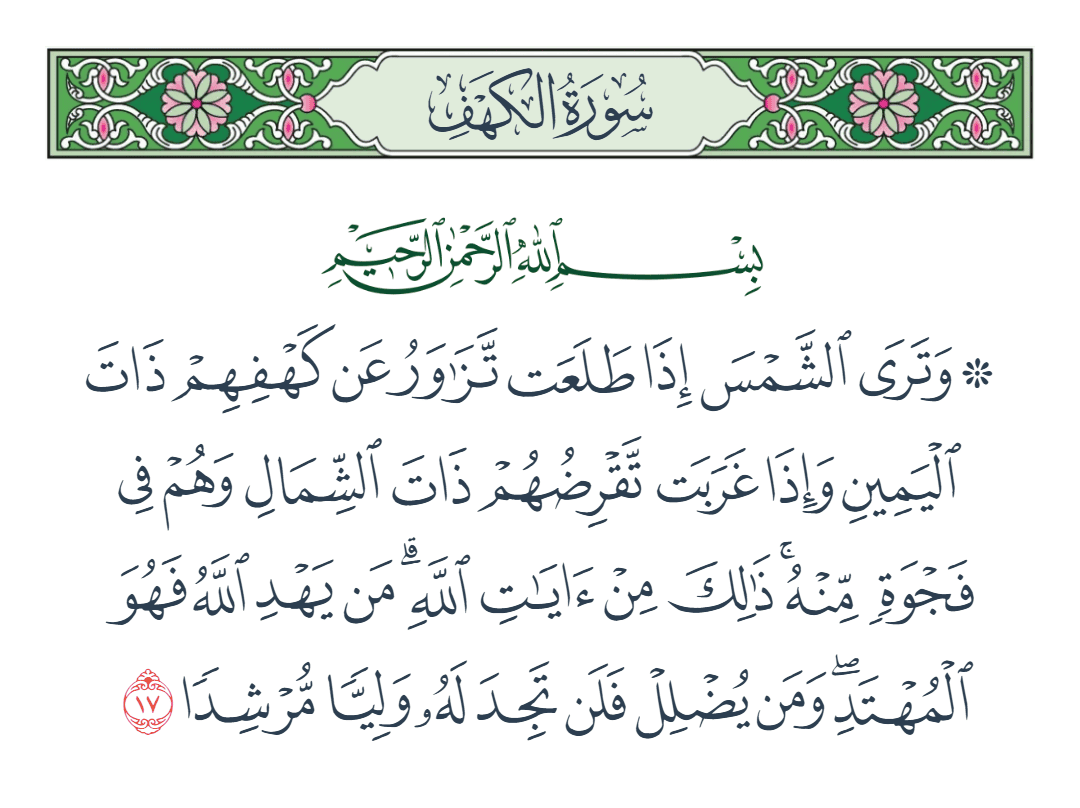 سُورَةُ الكَهۡفِ
بِسۡمِ ٱللَّهِ ٱلرَّحۡمَٰنِ ٱلرَّحِيمِ
۞ وَتَرَى ٱلشَّمۡسَ إِذَا طَلَعَت تَّزَٰوَرُ عَن كَهۡفِهِمۡ ذَاتَ
ٱلۡيَمِينِ وَإِذَا غَرَبَت تَّقۡرِضُهُمۡ ذَاتَ ٱلشِّمَالِ وَهُمۡ فِي
فَجۡوَةٖ مِّنۡهُۚ ذَٰلِكَ مِنۡ ءَايَٰتِ ٱللَّهِۗ مَن يَهۡدِ ٱللَّهُ فَهُوَ
ٱلۡمُهۡتَدِۖ وَمَن يُضۡلِلۡ فَلَن تَجِدَ لَهُۥ وَلِيّٗا مُّرۡشِدٗا ١٧